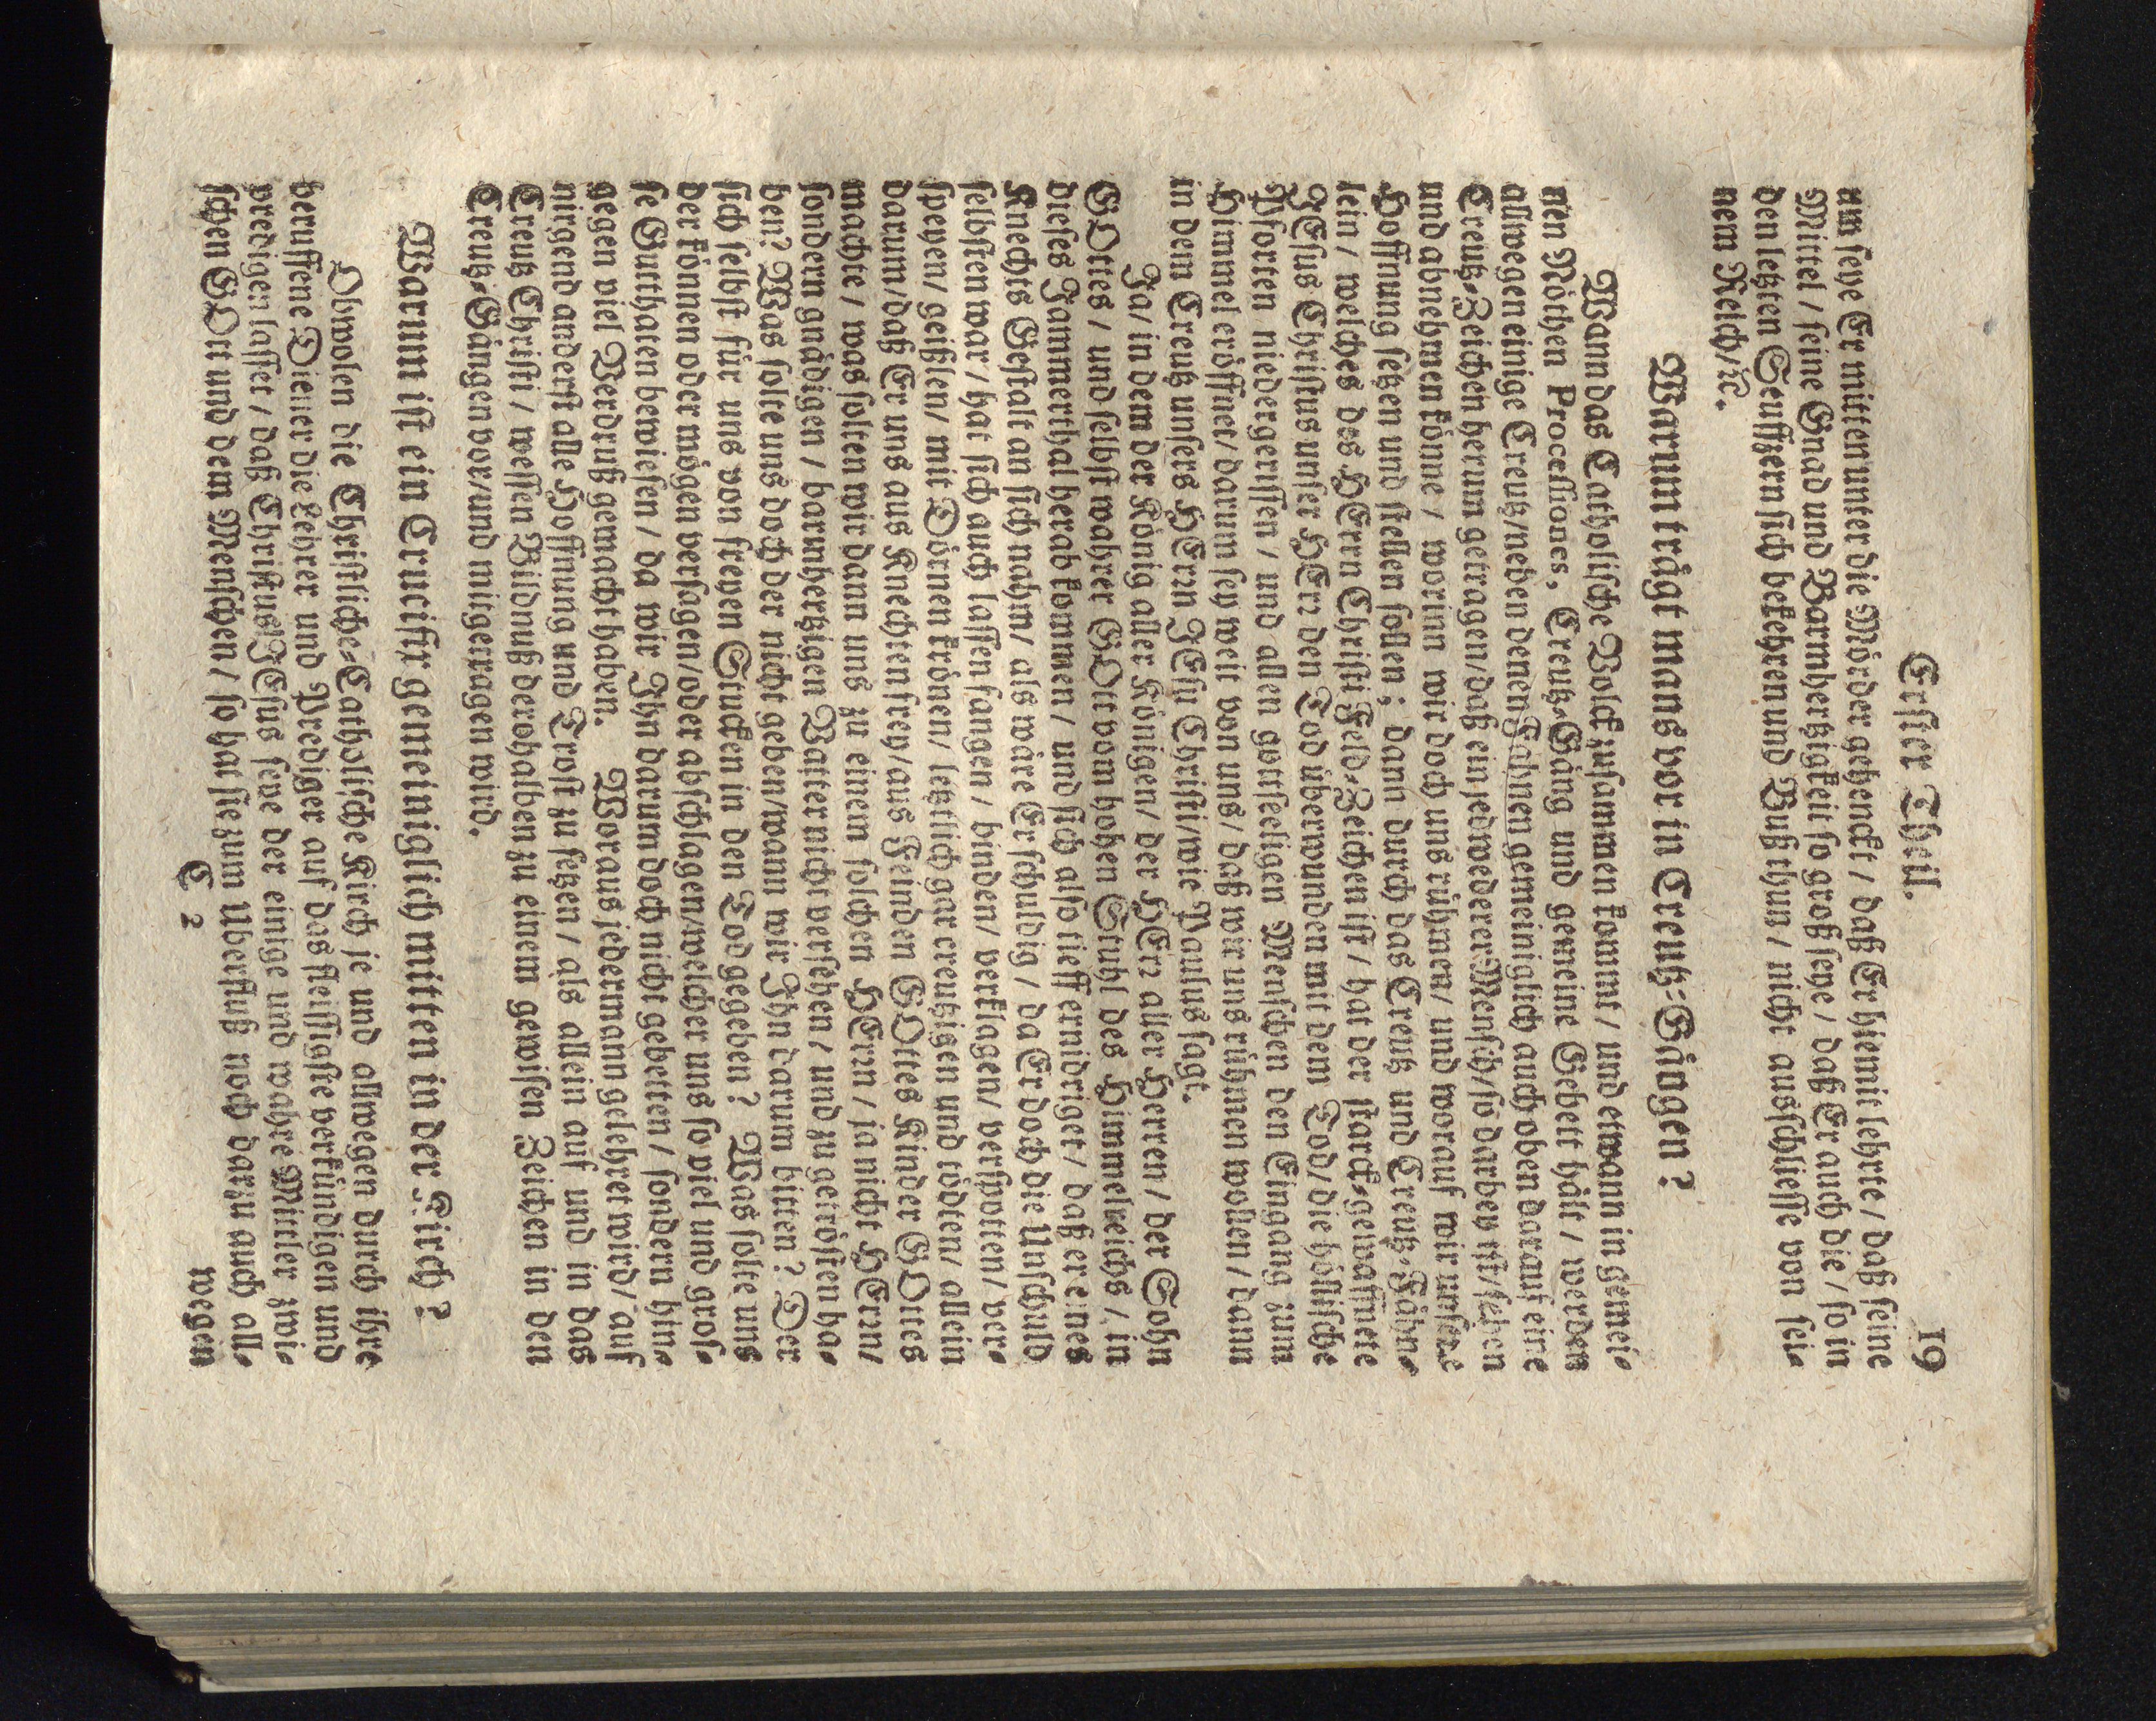 Erster Theil. 19
um seye Er mitten unter die Mörder gehenckt / daß Er hiemit lehrte / daß seine
Mittel / seine Gnad und Barmhertzigkeit so groß seye / daß Er auch die / so in
den letzten Seufftzern sich bekehren und Buß thun / nicht ausschliesse von sei-
nem Reich / ꝛc.
Warum trägt mans vor in Creutz-Gängen?
Wann das Catholische Volck zusammen kommt / und etwann in gemei-
nen Nöthen Processiones, Creutz-Gäng und gemeine Gebett hält / werden
allwegen einige Creutz / neben denen Fahnen gemeiniglich auch oben darauf eine
Creutz-Zeichen herum getragen / daß ein jedwederer Mensch / so darbey ist / sehen
und abnehmen könne / worinn wir doch uns rühmen / und worauf wir unsere
Hoffnung setzen und stellen sollen; dann durch das Creutz und Creutz-Fähn-
lein / welches des HErrn Christi Feld-Zeichen ist / hat der starck-gewaffnete
JEsus Christus unser HErr den Tod überwunden mit dem Tod / die höllische
Pforten niedergerissen / und allen gottseeligen Menschen den Eingang zum
Himmel eröffnet / darum sey weit von uns / daß wir uns rühmen wollen / dann
in dem Creutz unsers HErrn JEsu Christi / wie Paulus sagt.
Ja / in dem der König aller Königen / der HErr aller Herren / der Sohn
GOttes / und selbst wahrer GOtt vom hohen Stuhl des Himmelreichs / in
dieses Jammerthal herab kommen / und sich also tieff ernidriget / daß er eines
Knechts Gestalt an sich nahm / als wäre Er schuldig / da Er doch die Unschuld
selbsten war / hat sich auch lassen fangen / binden / verklagen / verspotten / ver-
speyen / geißlen / mit Dörnen krönen / letztlich gar creutzigen und tödten / allein
darum / daß Er uns aus Knechten frey / aus Feinden GOttes Kinder GOttes
machte / was solten wir dann uns zu einem solchen HErrn / ja nicht HErrn /
sondern gnädigen / barmhertzigen Vatter nicht versehen / und zu getrösten ha-
ben? Was solte uns doch der nicht geben / wann wir Jhn darum bitten? Der
sich selbst für uns von freyen Stucken in den Tod gegeben? Was solte uns
der können oder mögen versagen / oder abschlagen / welcher uns so viel und gros-
se Gutthaten bewiesen / da wir Jhn darum doch nicht gebetten / sondern hin-
gegen viel Verdruß gemacht haben. Woraus jedermann gelehret wird / auf
nirgend anderst alle Hoffnung und Trost zu setzen / als allein auf und in das
Creutz Christi / wessen Bildnuß derohalben zu einem gewisen Zeichen in den
Creutz-Gängen vor / und mitgetragen wird.
Warum ist ein Crucifix gemeiniglich mitten in der Kirch?
Obwolen die Christliche-Catholische Kirch je und allwegen durch ihre
beruffene Diener die Lehrer und Prediger auf das fleissigste verkündigen und
predigen lasset / daß Christus JEsus seye der einige und wahre Mittler zwi-
schen GOtt und dem Menschen / so hat sie zum Uberfluß noch darzu auch all-
C 2 wegen